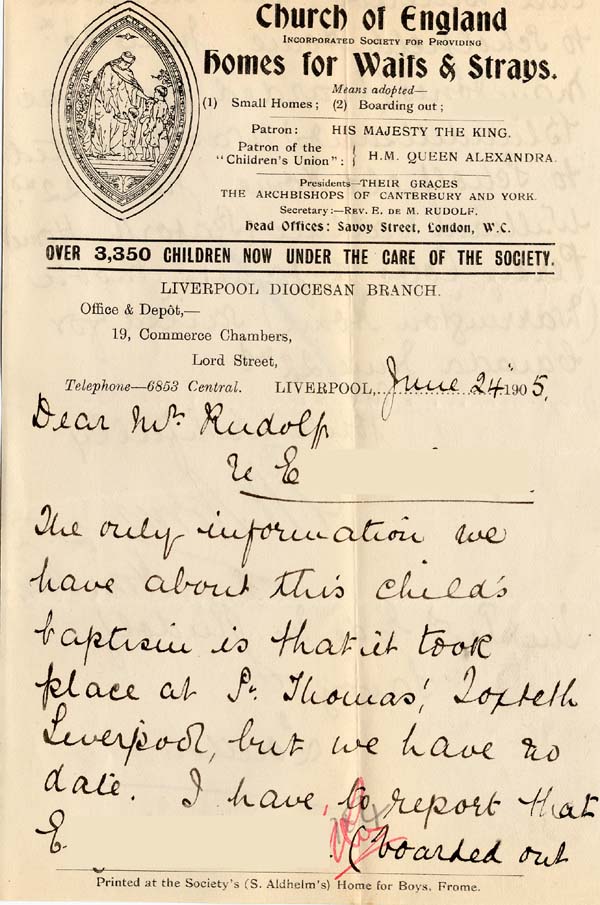 Church of England
Incorporated Society for Providing
Homes for Waifs & Strays.
Means adopted—
(1) Small Homes; (2) Boarding out;
Patron: HIS MAJESTY THE KING.
Patron of the "Children's Union": } H.M. QUEEN ALEXANDRA.
Presidents—THEIR GRACES
THE ARCHBISHOPS OF CANTERBURY AND YORK.
Secretary:—Rev. E. de M. RUDOLF.
Head Offices: Savoy Street, London, W.C.
OVER 3,350 CHILDREN NOW UNDER THE CARE OF THE SOCIETY.
LIVERPOOL DIOCESAN BRANCH.
Office & Depôt,—
19, Commerce Chambers,
Lord Street,
Telephone—6853 Central. LIVERPOOL, June 24 1905.
Dear Mr. Rudolf
re E
The only information we
have about this child's
baptism is that it took
place at St. Thomas', Toxteth
Liverpool, but we have no
date. I have to report that
E (boarded out
Printed at the Society's (S. Aldhelm's) Home for Boys, Frome.